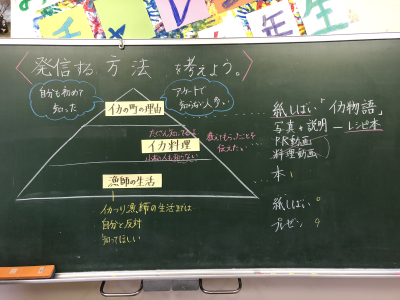 〈発信する方法を考えよう。〉
自分も初めて
知った
アンケートで
知らない人多い
イカの町の理由
たくさん知ってるよ
イカ料理
小さい人も知らない
教えてもらったことを
伝えたい
漁師の生活
イカつり漁師の生活までは
自分と反対
知ってほしい
紙しばい「イカ物語」
写真+説明―レシピ本
PR動画
料理動画
本
紙しばい
プレゼン 9